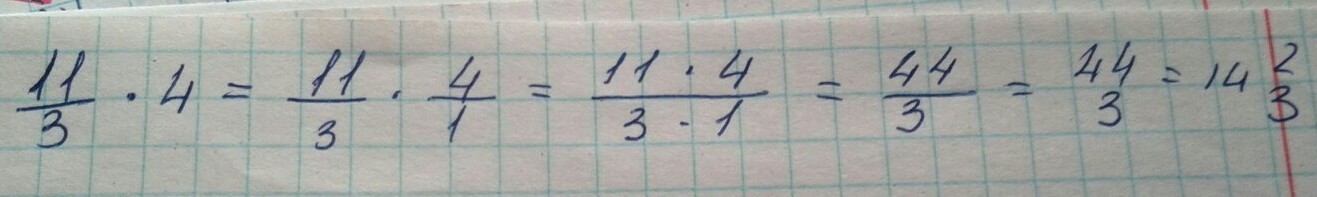 11/3 · 4 = 11/3 · 4/1 = 11 · 4/3 · 1 = 44/3 = 44/3 = 14 2/3